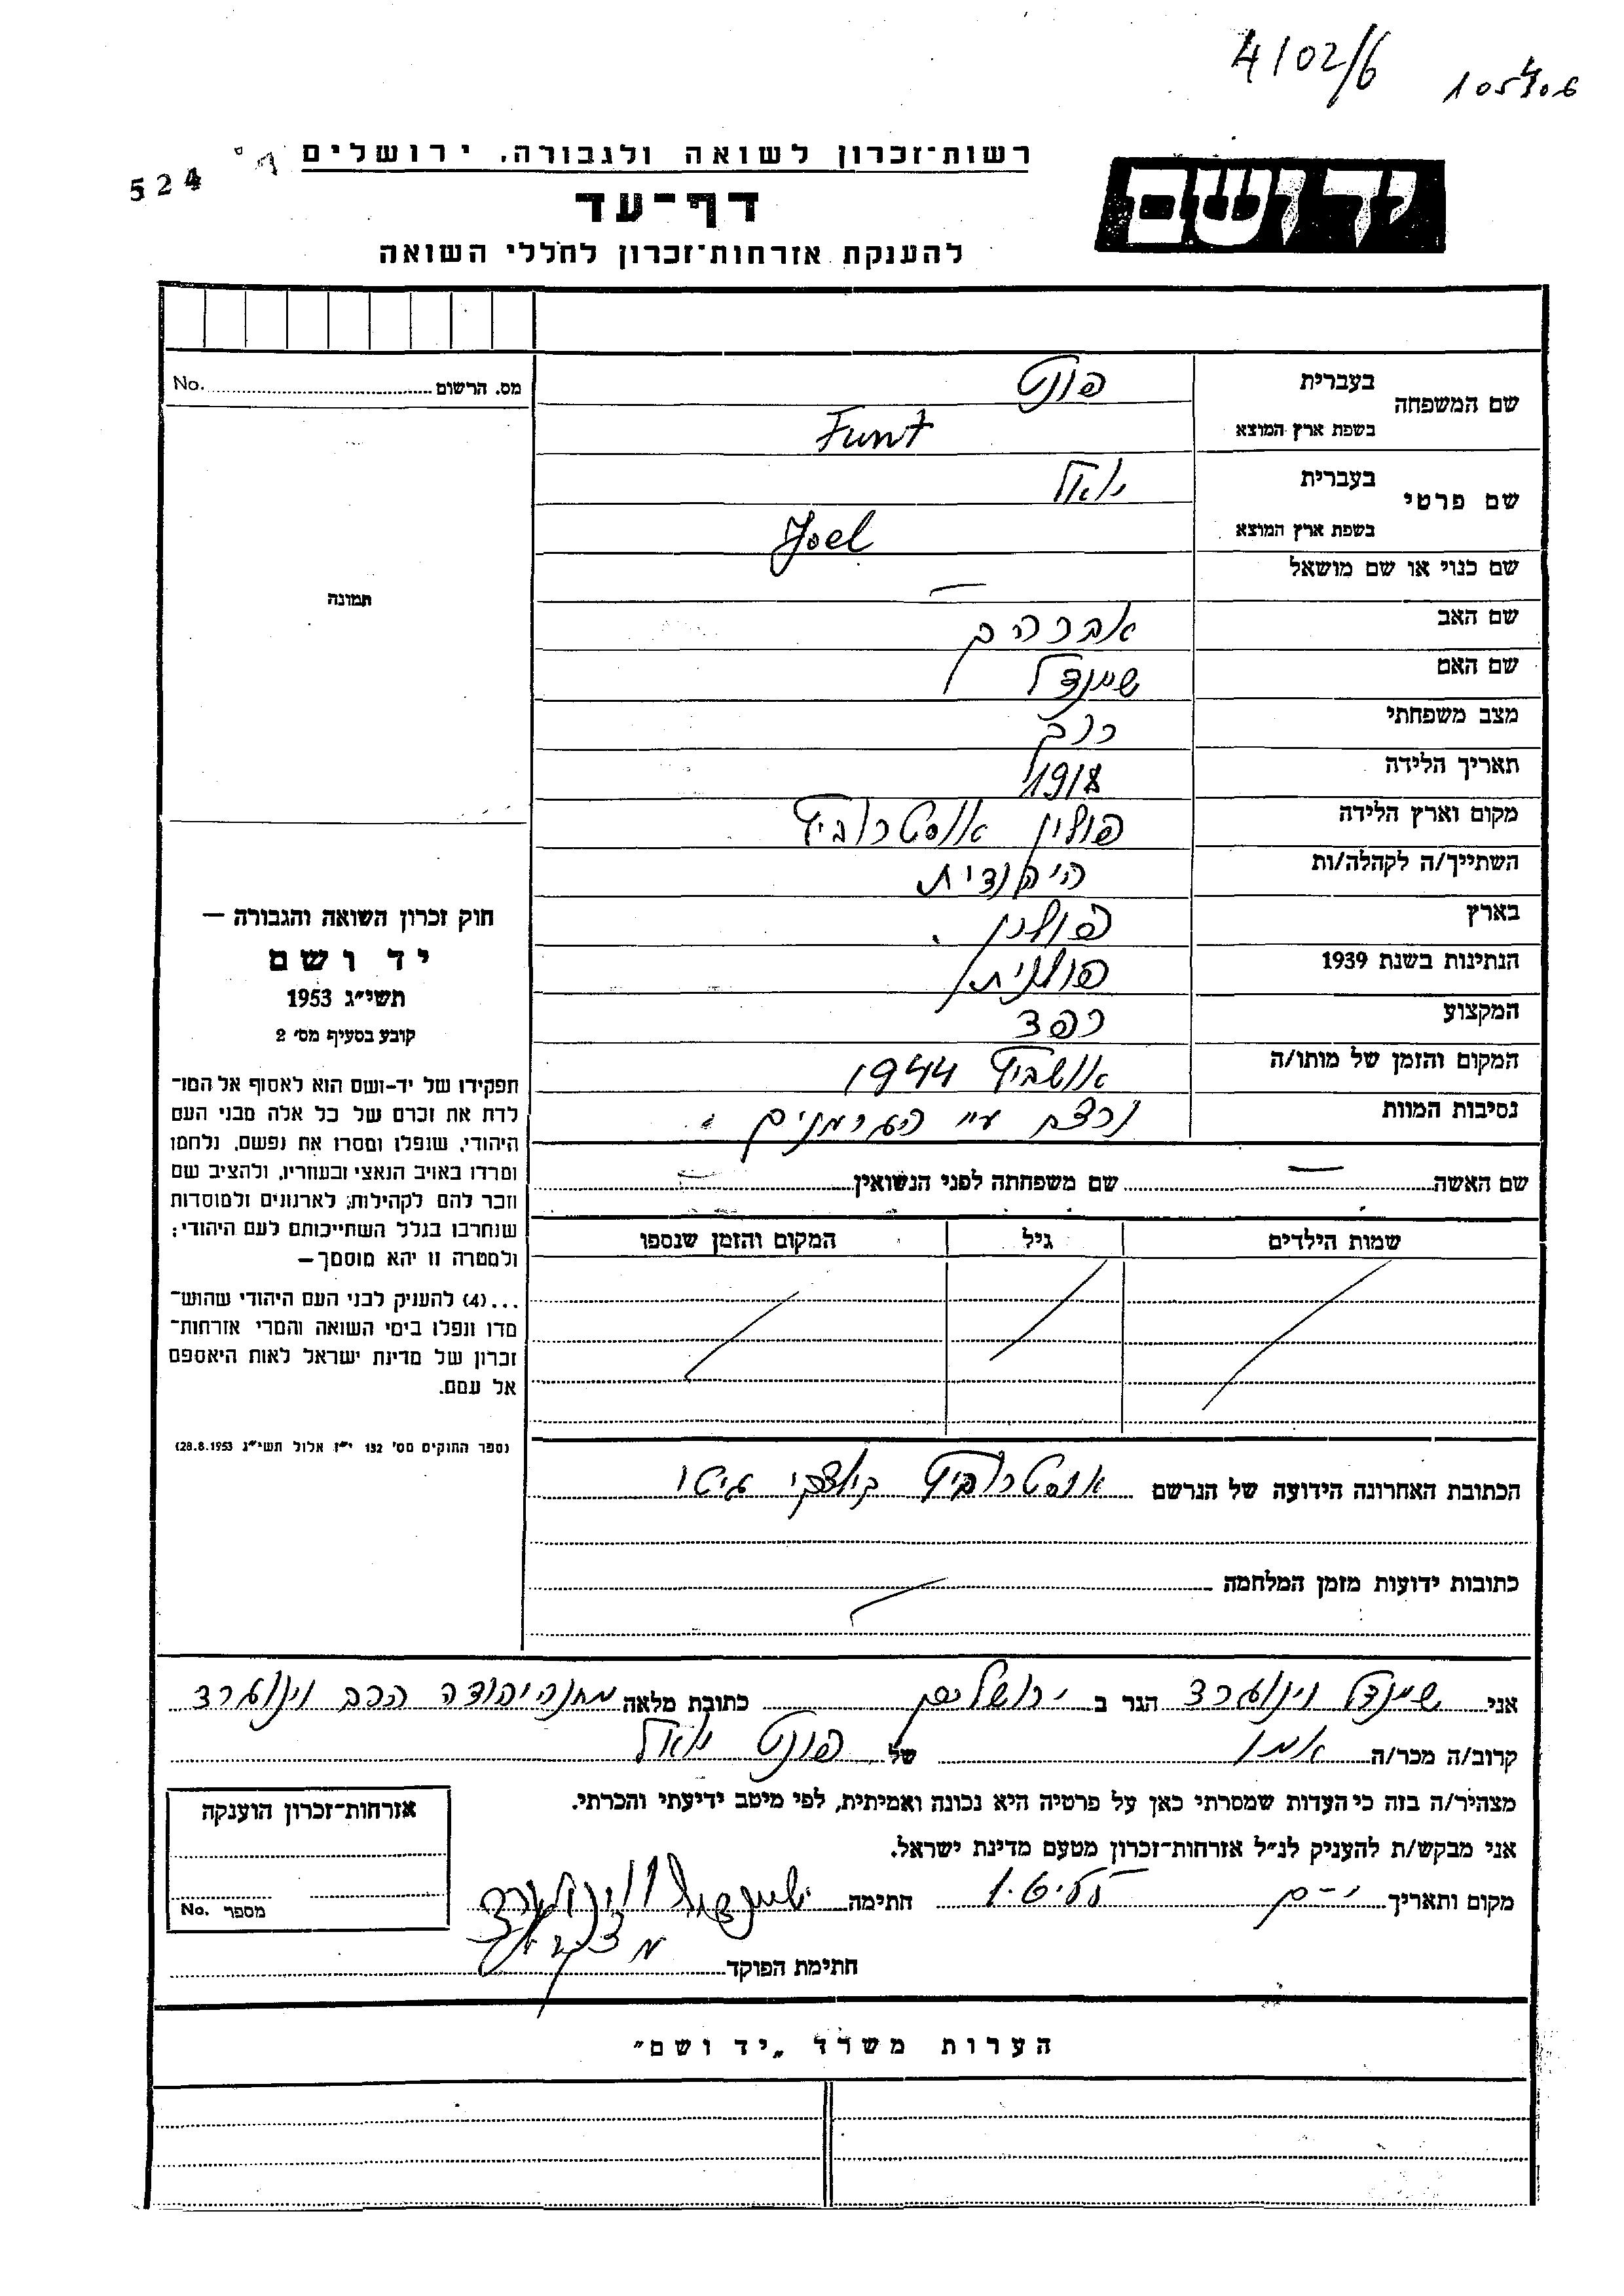 4102/6
105406
524
רשות־זכרון לשואה ולגבורה, ירושלים
יד ושם
דף־עד
להענקת אזרחות־זכרון לחללי השואה
מס. הרשום No.
שם המשפחה בעברית פונט
בשפת ארץ המוצא Funt
שם פרטי בעברית יואל
בשפת ארץ המוצא Joel
שם כנוי או שם מושאל —
שם האב אברהם
שם האם שיינדל
מצב משפחתי רווק
תאריך הלידה 1918
מקום וארץ הלידה פולין אוסטרוביץ
השתייך/ה לקהלה/ות היהודית
בארץ פולין.
הנתינות בשנת 1939 פולנית
המקצוע רפד
המקום והזמן של מותו/ה אושביץ 1944
נסיבות המוות נרצח ע"י הגרמנים
שם האשה — שם משפחתה לפני הנשואין —
שמות הילדים גיל המקום והזמן שנספו
תמונה
חוק זכרון השואה והגבורה —
יד ושם
תשי״ג 1953
קובע בסעיף מס׳ 2
תפקידו של יד-ושם הוא לאסוף אל המו־
לדת את זכרם של כל אלה מבני העם
היהודי, שנפלו ומסרו את נפשם, נלחמו
ומרדו באויב הנאצי ובעוזריו, ולהציב שם
וזכר להם לקהילות, לארגונים ולמוסדות
שנחרבו בגלל השתייכותם לעם היהודי;
ולמטרה זו יהא מוסמך—
...(4) להעניק לבני העם היהודי שהוש־
מדו ונפלו בימי השואה והמרי אזרחות־
זכרון של מדינת ישראל לאות היאספם
אל עמם.
(ספר החוקים מס׳ 132 י״ז אלול תשי״ג 28.8.1953)
הכתובת האחרונה הידועה של הנרשם אוסטרוביץ גיטו
כתובות ידועות מזמן המלחמה
אני שיינדל וינוגרד הגר ב ירושלים כתובת מלאה מחנה יהודה הרב וינוגרד
קרוב/ה מכר/ה אמו של פונט יואל
מצהיר/ה בזה כי העדות שמסרתי כאן על פרטיה היא נכונה ואמיתית, לפי מיטב ידיעתי והכרתי.
אני מבקש/ת להעניק לנ״ל אזרחות־זכרון מטעם מדינת ישראל.
מקום ותאריך י-ם חתימה שיינדל וינוגרד
חתימת הפוקד
אזרחות־זכרון הוענקה
מספר No.
הערות משרד „יד ושם״